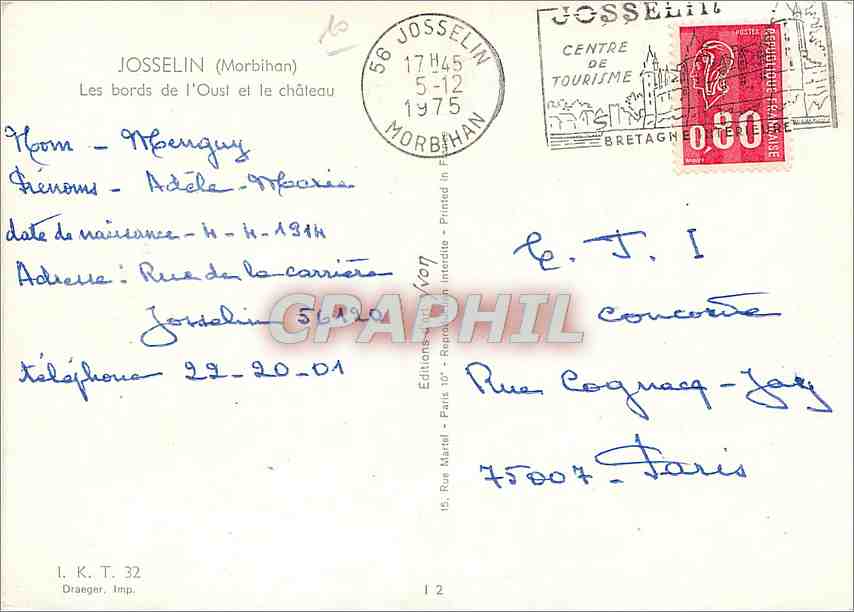 10
JOSSELIN (Morbihan)
Les bords de l'Oust et le château
56 JOSSELIN
17 H 45
5-12
1975
MORBIHAN
JOSSELIN
CENTRE
DE
TOURISME
BRETAGNE INTERIEURE
REPUBLIQUE FRANÇAISE
0,80
Nom - Menguy
Prénoms - Adèle-Marie
date de naissance - 4-4-1914
Adresse : Rue de la carrière
Josselin 56120
téléphone 22-20-01
E. J. I
Concorde
Rue Cognacq-Jay
75007 - Paris
CPAPHIL
15, Rue Martel - Paris 10e - Reproduction interdite - Printed in F
Editions d'art Yvon
I. K. T. 32
Draeger, Imp.
I 2